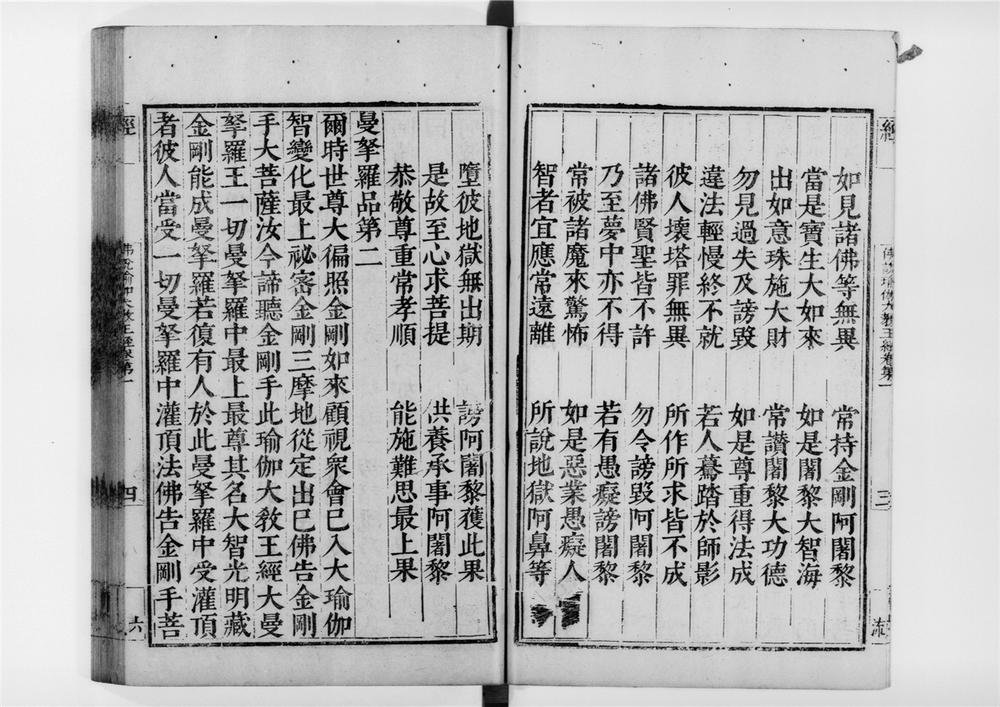 如見諸佛等無異　常持金剛阿闍黎
當是寶生大如來　如是闍黎大智海
出如意珠施大財　常讚闍黎大功德
勿見過失及謗毀　如是尊重得法成
違法輕慢終不就　若人驀踏於師影
彼人壞塔罪無異　所作所求皆不成
諸佛賢聖皆不許　勿令謗毀阿闍黎
乃至夢中亦不得　若有愚癡謗闍黎
常被諸魔來驚怖　如是惡業愚癡人
智者宜應常遠離　所說地獄阿鼻等
經
佛說瑜伽大教王經卷第一
三
墮彼地獄無出期　謗阿闍黎獲此果
是故至心求菩提　供養承事阿闍黎
恭敬尊重常孝順　能施難思最上果
曼拏羅品第二
爾時世尊大徧照金剛如來顧視衆會已入大瑜伽
智變化最上祕密金剛三摩地從定出已佛告金剛
手大菩薩汝今諦聽金剛手此瑜伽大教王經大曼
拏羅王一切曼拏羅中最上最尊其名大智光明藏
金剛能成曼拏羅若復有人於此曼拏羅中受灌頂
者彼人當受一切曼拏羅中灌頂法佛告金剛手菩
經
佛說瑜伽大教王經卷第一
四
六